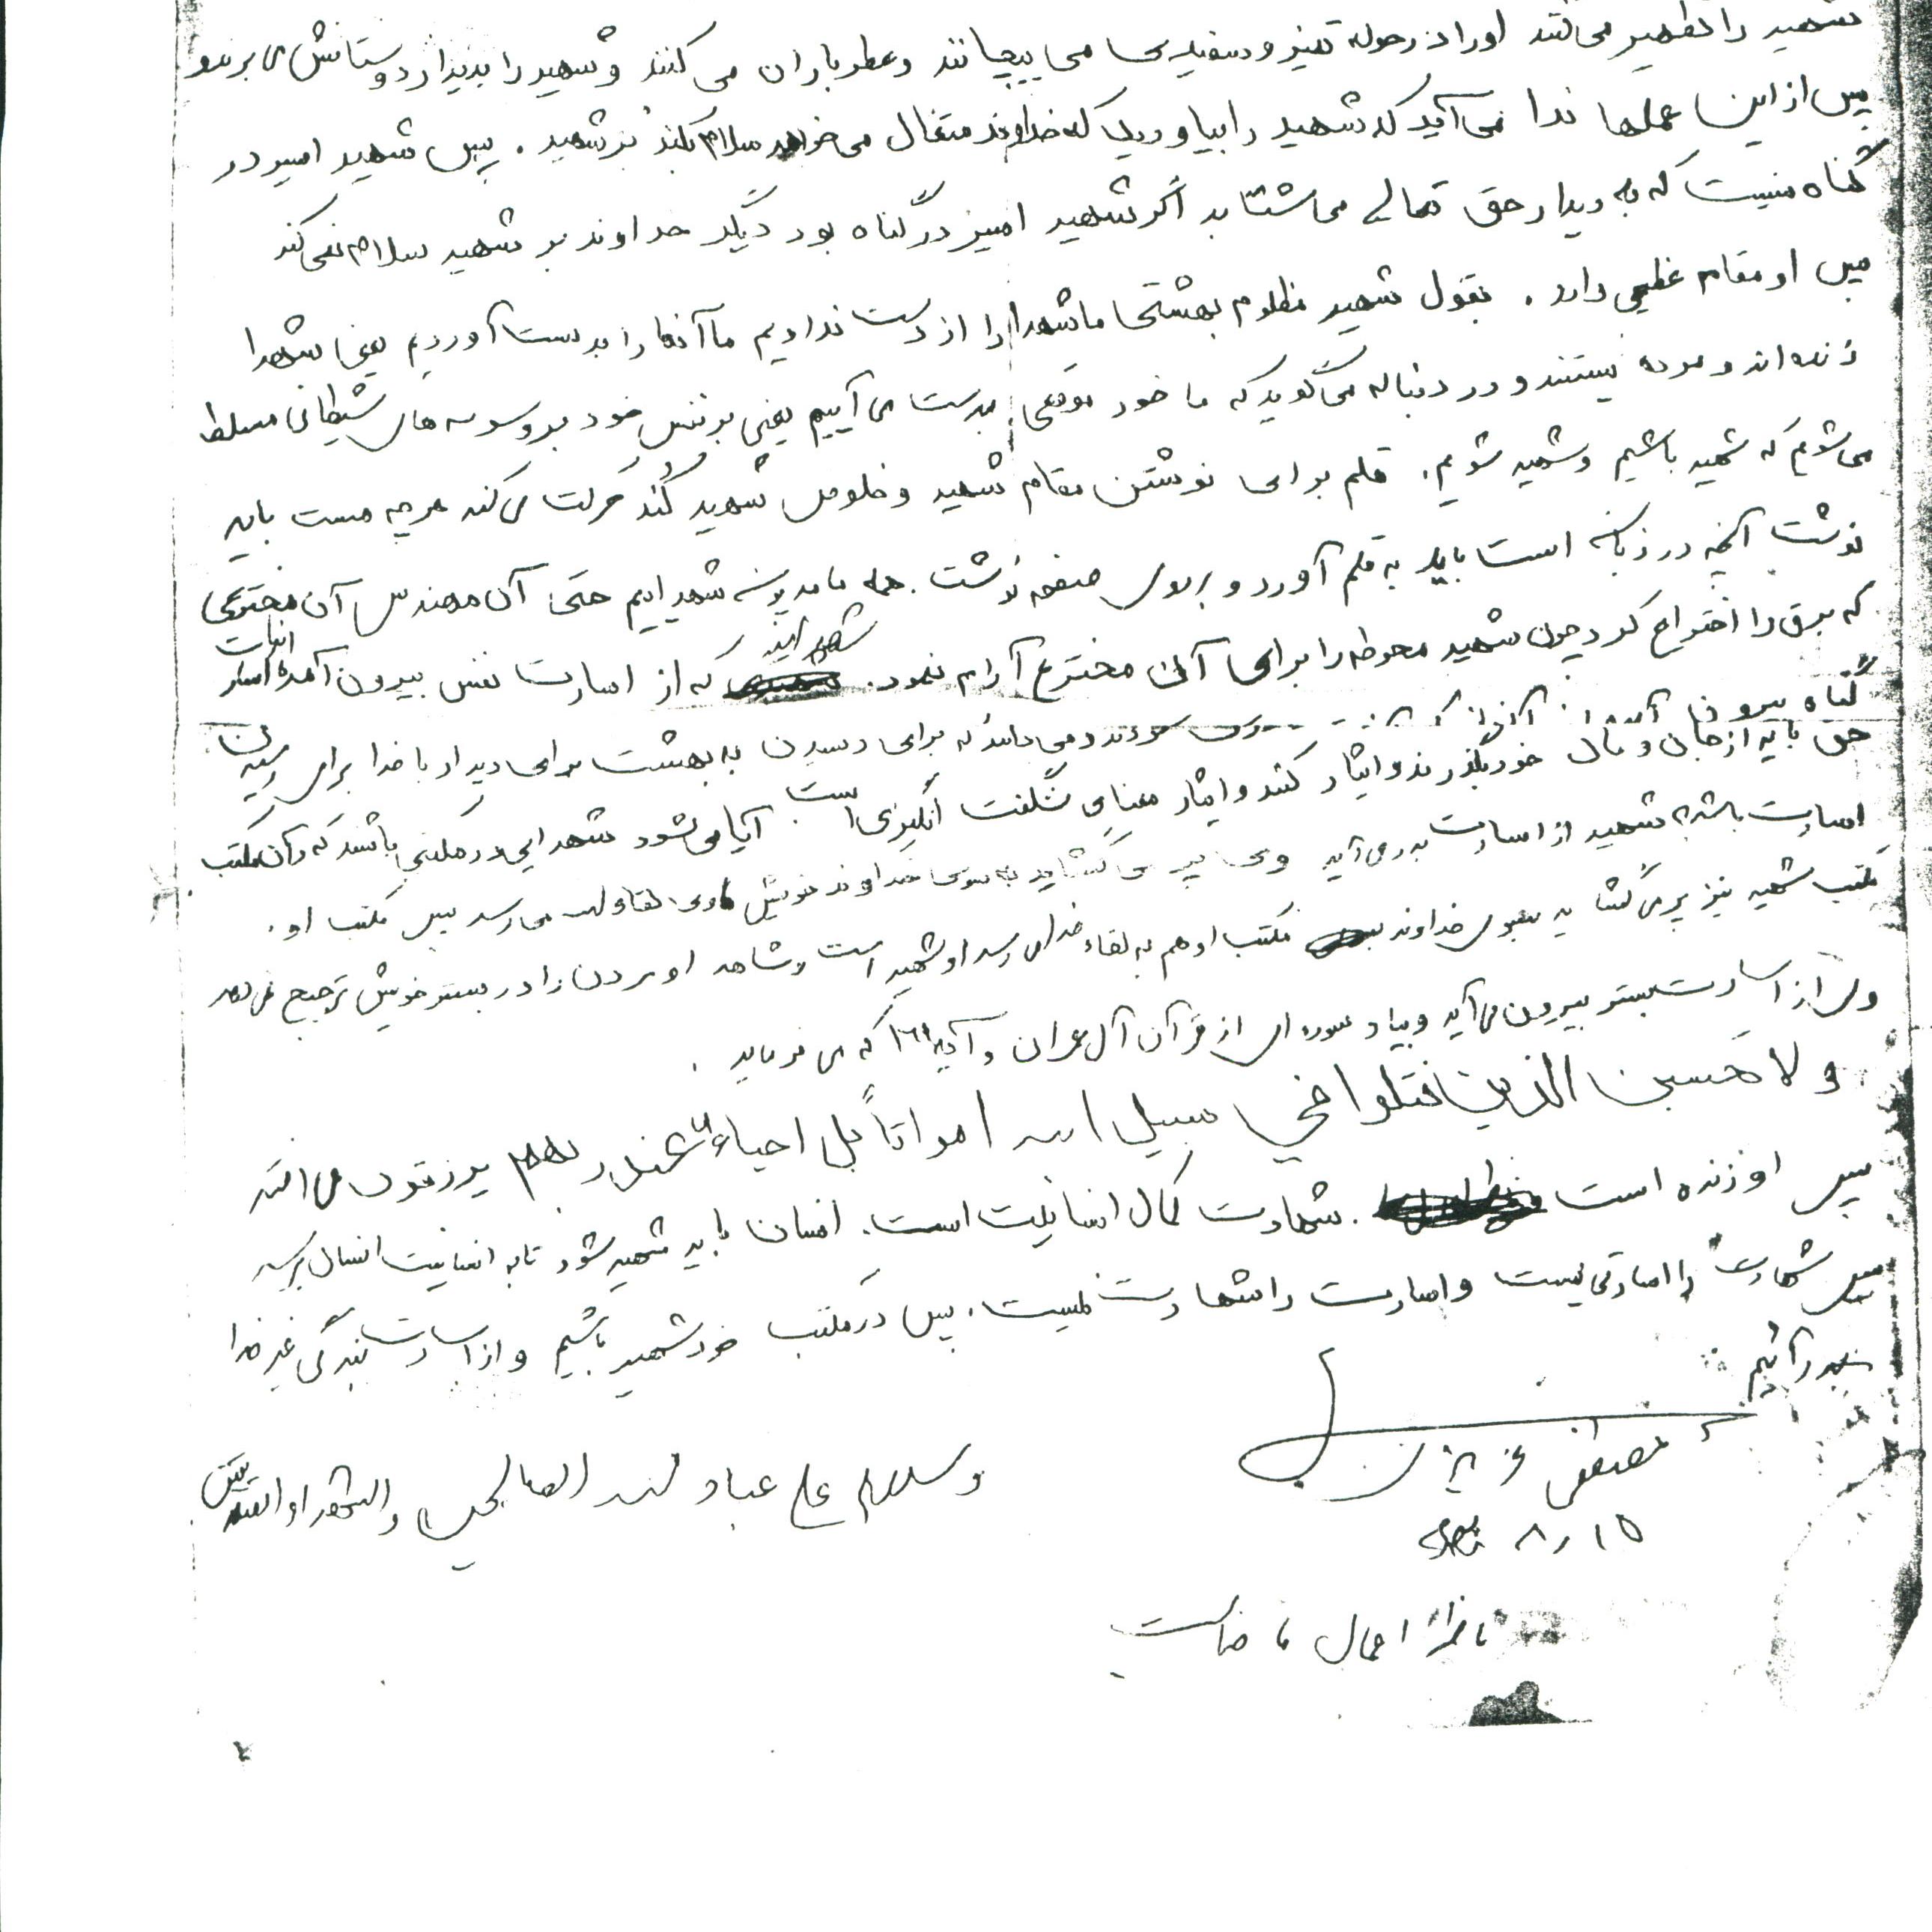 شهید را تطهیر می‌کنند او را در حوله تمیز و سفیدی می پیچانند و عطر باران می کنند و شهید را بدیدار دوستانش می برند و
پس از این عملها ندا می‌آید که شهید را بیاورید که خداوند متعال می‌خواهد سلام کند بر شهید. پس شهید اسیر در
گناه نیست که به دیدار حق تعالی می شتابد اگر شهید اسیر در گناه بود دیگر خداوند بر شهید سلام نمی کند
پس او مقام عظیمی دارد. بقول شهید مظلوم بهشتی ما شهدا را از دست ندادیم ما آنها را بدست آوردیم یعنی شهدا
زنده اند و مرده نیستند و در دنباله می‌گوید که ما خود موقعی بدست می آییم یعنی بر نفس خود بر وسوسه های شیطانی مسلط
می‌شویم که شهید باشیم و شهید شویم. قلم برای نوشتن مقام شهید و خلوص شهید کُند حرکت می کند هر چه هست باید
نوشت آنچه در زبان است باید به قلم آورد و بر روی صفحه نوشت. همه ما مدیون شهدائیم حتی آن مهندس آن مخترعی
که برق را اختراع کرد چون شهید محوطه را برای آن مخترع آرام نمود. شهدایند که از اسارت نفس بیرون آمده
گناه بیرون
حق باید از جان و مال خود بگذرند و ایثار کنند و ایثار معنای شگفت انگیزی است. می دانند که برای رسیدن به بهشت برای دیدار با خدا برای رسیدن
آیا می شود شهدایی در مکتبی باشند که در آن مکتب
اسارت باشد شهید از اسارت بدر می آید و پر می گشاید به سوی خداوند خویش می رسد پس مکتب او
مکتب شهید نیز پر می گشاید بسوی خداوند مکتب او هم به لقاء خدا می رسد او شهید است و شاهد او مردن را در بستر خویش ترجیح نمی دهد
ولی از اسارت بستر بیرون می آید و بیاد سوره ای از قرآن آل عمران و آیه ۱۶۹ که می فرماید.
و لا تحسبن الذین قتلوا فی سبیل الله امواتاً بل احیاء عند ربهم یرزقون می افتد
پس او زنده است. شهادت کمال انسانیت است. انسان باید شهید شود تا به انسانیت انسان برسد
پس شهادت را اسارتی نیست و اسارت را شهادت نیست. پس در مکتب خود شهید باشیم و از اسارت بندگی غیر خدا
بدر آئیم
مصطفی عزیزی
و سلام علی عباد الله الصالحین و الشهدا و الصدیقین
۱۵ ر ۸
ناظر اعمال ما خداست